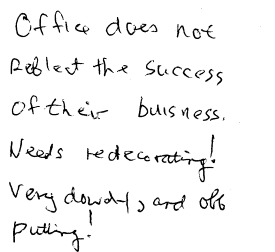 Office does not
Reflect the success
of their buisness.
Needs redecorating!
Very dowdy, and off
putting!